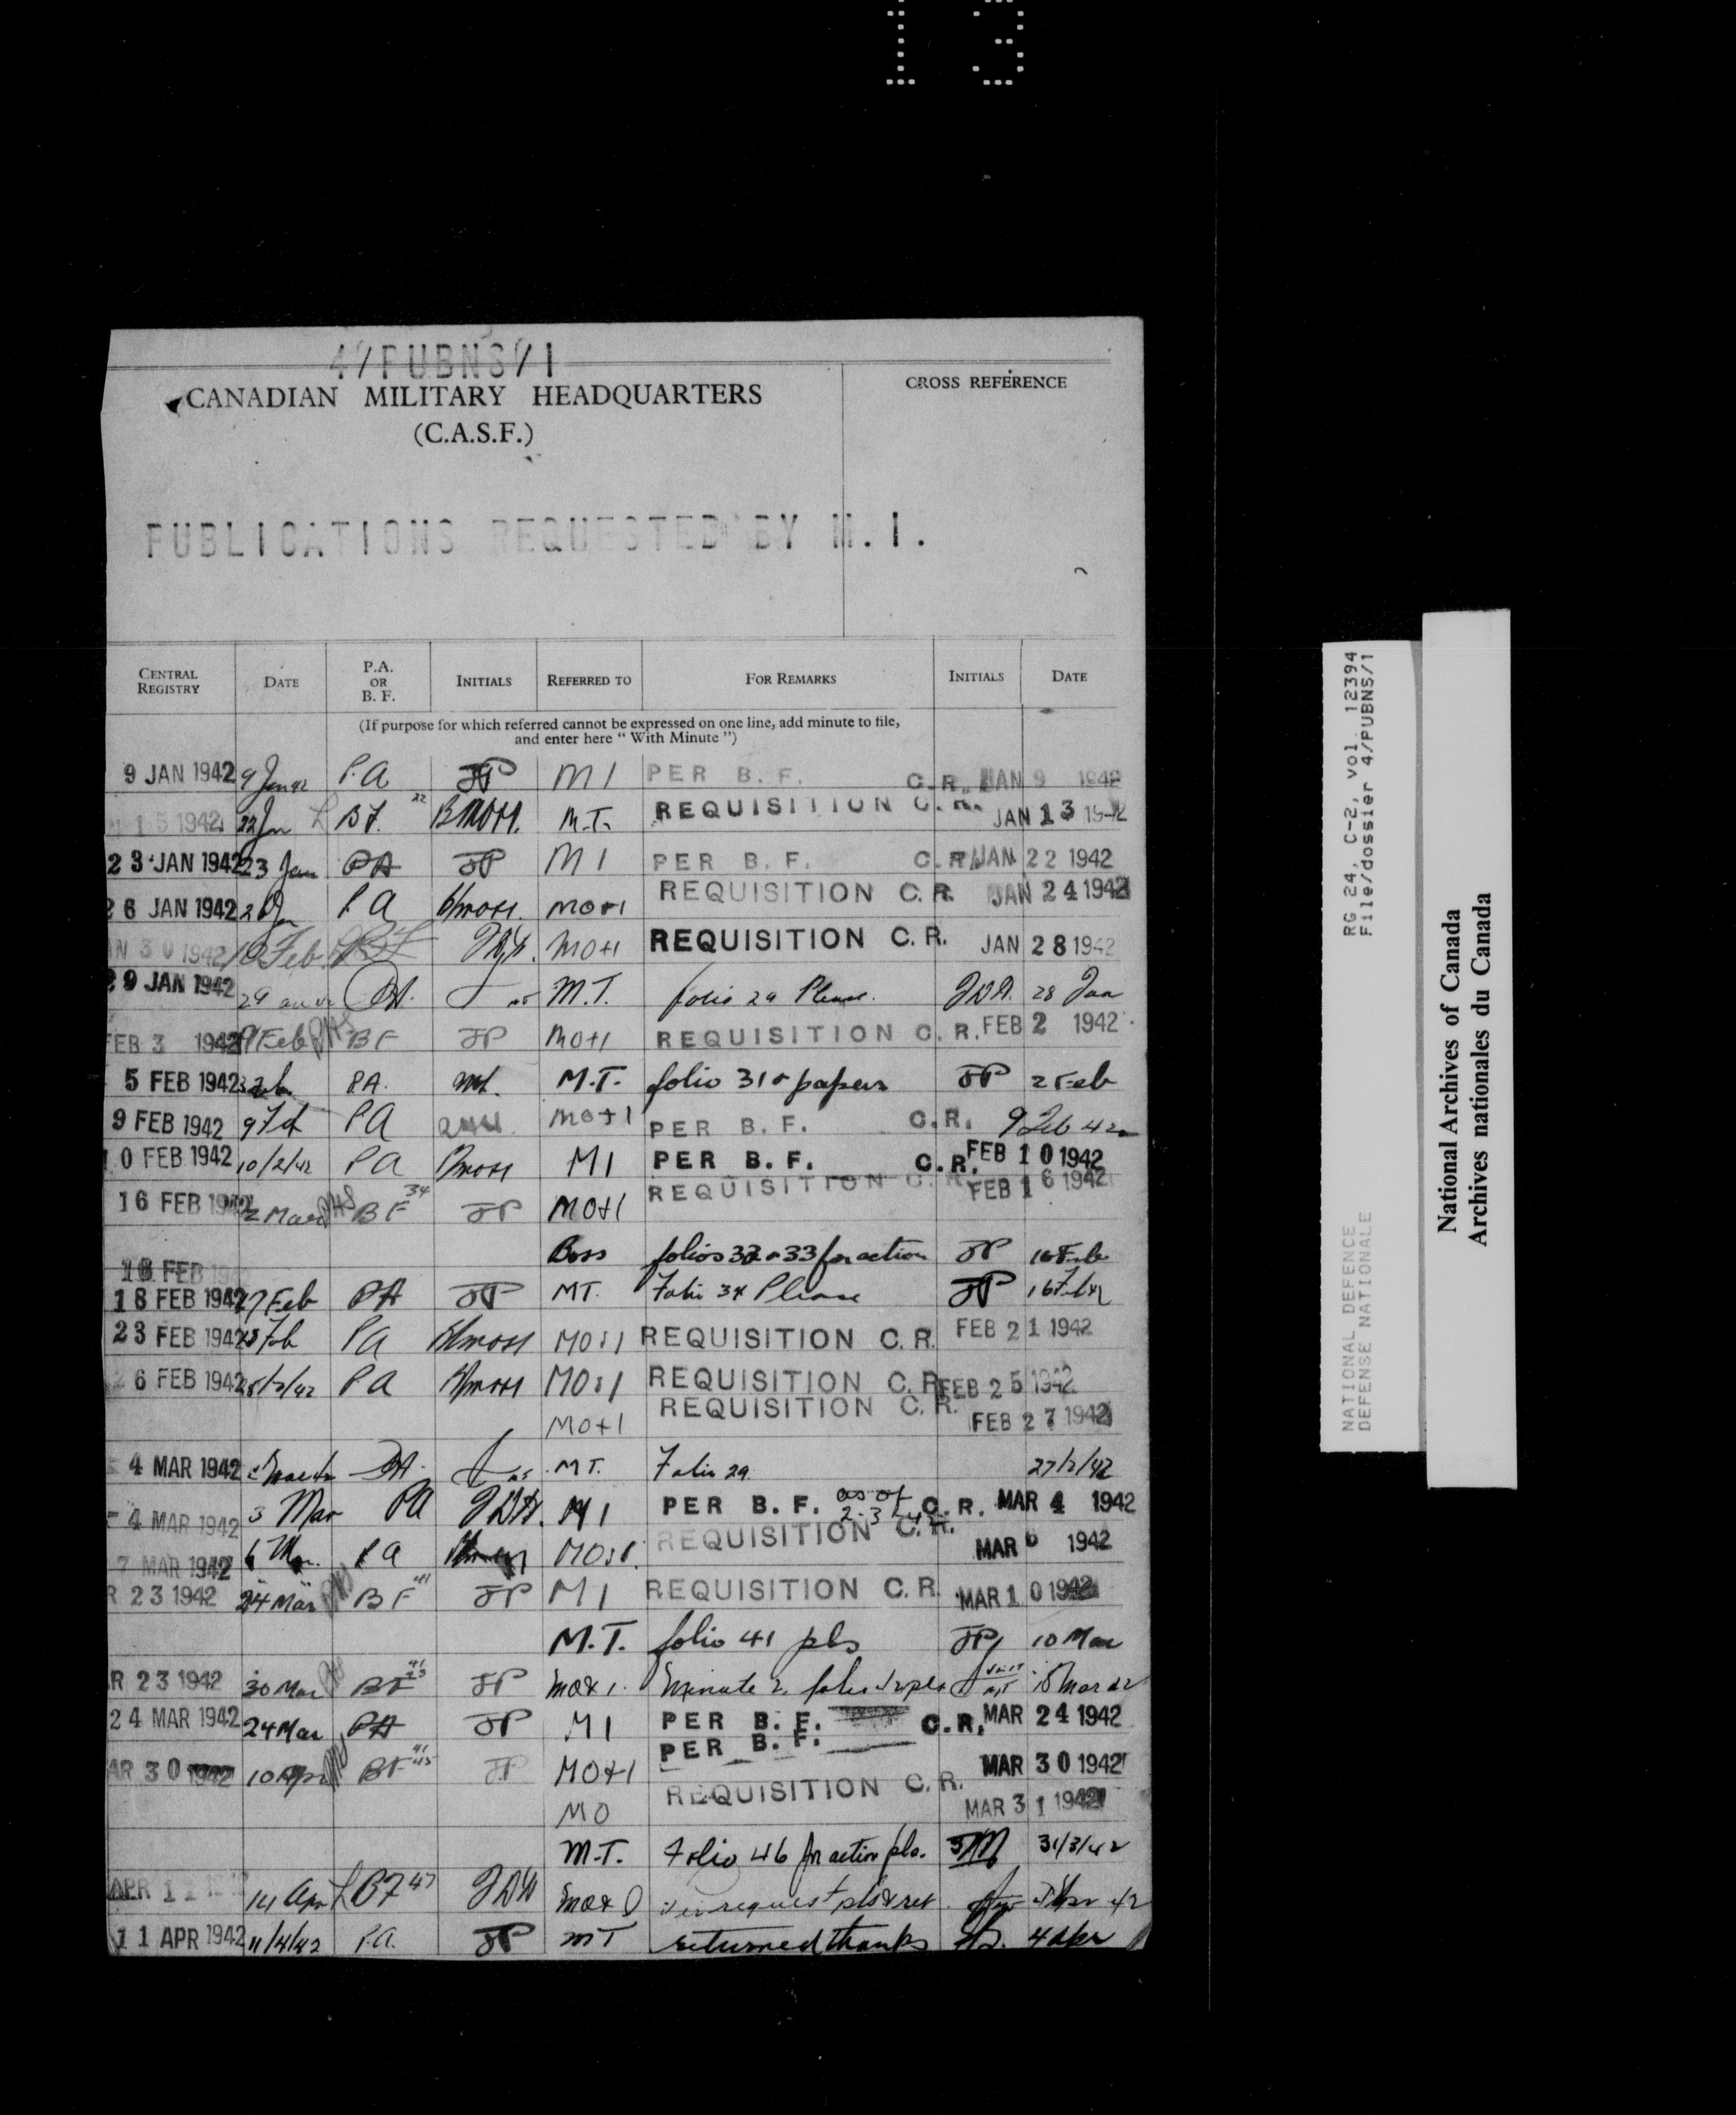 13
4/PUBNS/1
CANADIAN MILITARY HEADQUARTERS
(C.A.S.F.)
CROSS REFERENCE
PUBLICATIONS REQUESTED BY M.I.
CENTRAL REGISTRY DATE P.A. OR B. F. INITIALS REFERRED TO FOR REMARKS INITIALS DATE
(If purpose for which referred cannot be expressed on one line, add minute to file,
and enter here “ With Minute ”)
9 JAN 1942 9 Jan 42 P.A JP M I PER B. F. C. R. JAN 9 1942
15 1942 22 Jan B F. 22 M.T. REQUISITION C. R. JAN 13 1942
23 JAN 1942 23 Jan PA JP M I PER B. F. C. R. JAN 22 1942
26 JAN 1942 PA MO+1 REQUISITION C. R. JAN 24 1942
JAN 30 1942 10 Feb BF MO+1 REQUISITION C. R. JAN 28 1942
29 JAN 1942 29 PA. M.T. folio 29 Please. 28 Jan
FEB 3 1942 9 Feb BF JP MO+1 REQUISITION C. R. FEB 2 1942
5 FEB 1942 P.A. M.T. folio 31 & papers JP 2 Feb
9 FEB 1942 9 Feb PA MO+1 PER B. F. C. R. 9 Feb 42
10 FEB 1942 10/2/42 PA MI PER B. F. C. R. FEB 10 1942
16 FEB 1942 2 Mar BF 34 JP MO+1 REQUISITION C. R. FEB 16 1942
folios 32 & 33 for action JP 16 Feb
18 FEB
18 FEB 1942 17 Feb PA JP MT. Folio 34 Please JP 16 Feb 42
23 FEB 1942 23 Feb PA MO&1 REQUISITION C. R. FEB 21 1942
26 FEB 1942 PA MO&1 REQUISITION C. R. FEB 25 1942
MO+1 REQUISITION C. R. FEB 27 1942
4 MAR 1942 PA. MT. Folio 29 27/2/42
4 MAR 1942 3 Mar PA MI PER B. F. as of 2-3-42 C. R. MAR 4 1942
7 MAR 1942 6 Mar. PA MO&1. REQUISITION C. R. MAR 6 1942
R 23 1942 24 Mar BF 41 JP MI REQUISITION C. R. MAR 10 1942
M.T. folio 41 pls JP 10 Mar
R 23 1942 30 Mar BF JP MO&1. minute 2 Mar 42
24 MAR 1942 24 Mar PA JP MI PER B. F. C. R. MAR 24 1942
MAR 30 1942 10 Apr BF 41 45 JP MO+1 PER B. F. MAR 30 1942
MO REQUISITION C. R. MAR 31 1942
M.T. Folio 46 for action pls. 31/3/42
APR 11 14 Apr BF 47 MO&1 request pls & ret Apr 42
11 APR 1942 11/4/42 P.A. JP MT returned thanks 4 Apr
RG 24, C-2, vol. 12394
File/dossier 4/PUBNS/1
NATIONAL DEFENCE
DEFENSE NATIONALE
National Archives of Canada
Archives nationales du Canada